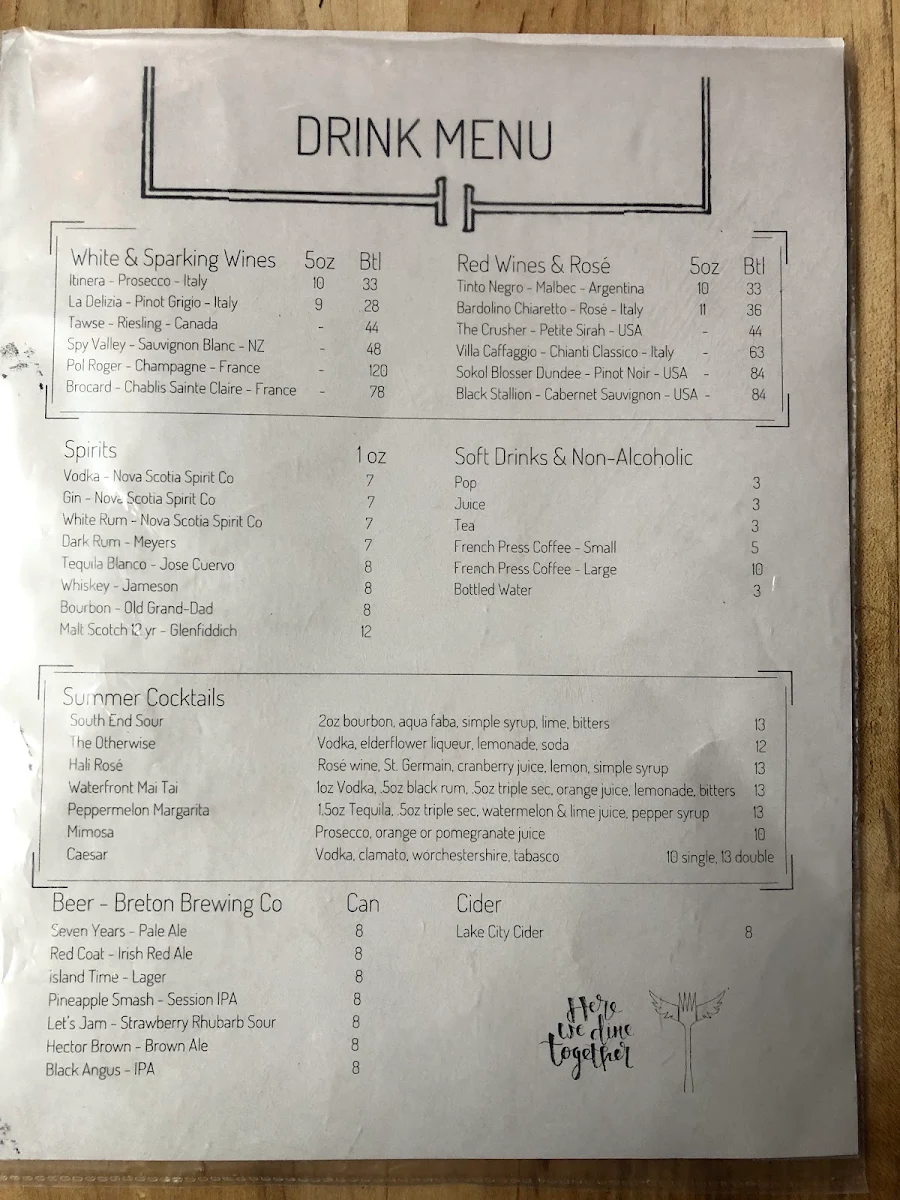 DRINK MENU
White & Sparking Wines 5oz Btl
Itinera - Prosecco - Italy 10 33
La Delizia - Pinot Grigio - Italy 9 28
Tawse - Riesling - Canada - 44
Spy Valley - Sauvignon Blanc - NZ - 48
Pol Roger - Champagne - France - 120
Brocard - Chablis Sainte Claire - France - 78
Red Wines & Rosé 5oz Btl
Tinto Negro - Malbec - Argentina 10 33
Bardolino Chiaretto - Rosè - Italy 11 36
The Crusher - Petite Sirah - USA - 44
Villa Caffaggio - Chianti Classico - Italy - 63
Sokol Blosser Dundee - Pinot Noir - USA - 84
Black Stallion - Cabernet Sauvignon - USA - 84
Spirits 1 oz
Vodka - Nova Scotia Spirit Co 7
Gin - Nova Scotia Spirit Co 7
White Rum - Nova Scotia Spirit Co 7
Dark Rum - Meyers 7
Tequila Blanco - Jose Cuervo 8
Whiskey - Jameson 8
Bourbon - Old Grand-Dad 8
Malt Scotch 12 yr - Glenfiddich 12
Soft Drinks & Non-Alcoholic
Pop 3
Juice 3
Tea 3
French Press Coffee - Small 5
French Press Coffee - Large 10
Bottled Water 3
Summer Cocktails
South End Sour 2oz bourbon, aqua faba, simple syrup, lime, bitters 13
The Otherwise Vodka, elderflower liqueur, lemonade, soda 12
Hali Rosé Rosé wine, St. Germain, cranberry juice, lemon, simple syrup 13
Waterfront Mai Tai 1oz Vodka, .5oz black rum, .5oz triple sec, orange juice, lemonade, bitters 13
Peppermelon Margarita 1.5oz Tequila, .5oz triple sec, watermelon & lime juice, pepper syrup 13
Mimosa Prosecco, orange or pomegranate juice 10
Caesar Vodka, clamato, worchestershire, tabasco 10 single, 13 double
Beer - Breton Brewing Co Can
Seven Years - Pale Ale 8
Red Coat - Irish Red Ale 8
Island Time - Lager 8
Pineapple Smash - Session IPA 8
Let's Jam - Strawberry Rhubarb Sour 8
Hector Brown - Brown Ale 8
Black Angus - IPA 8
Cider
Lake City Cider 8
Here
we dine
together